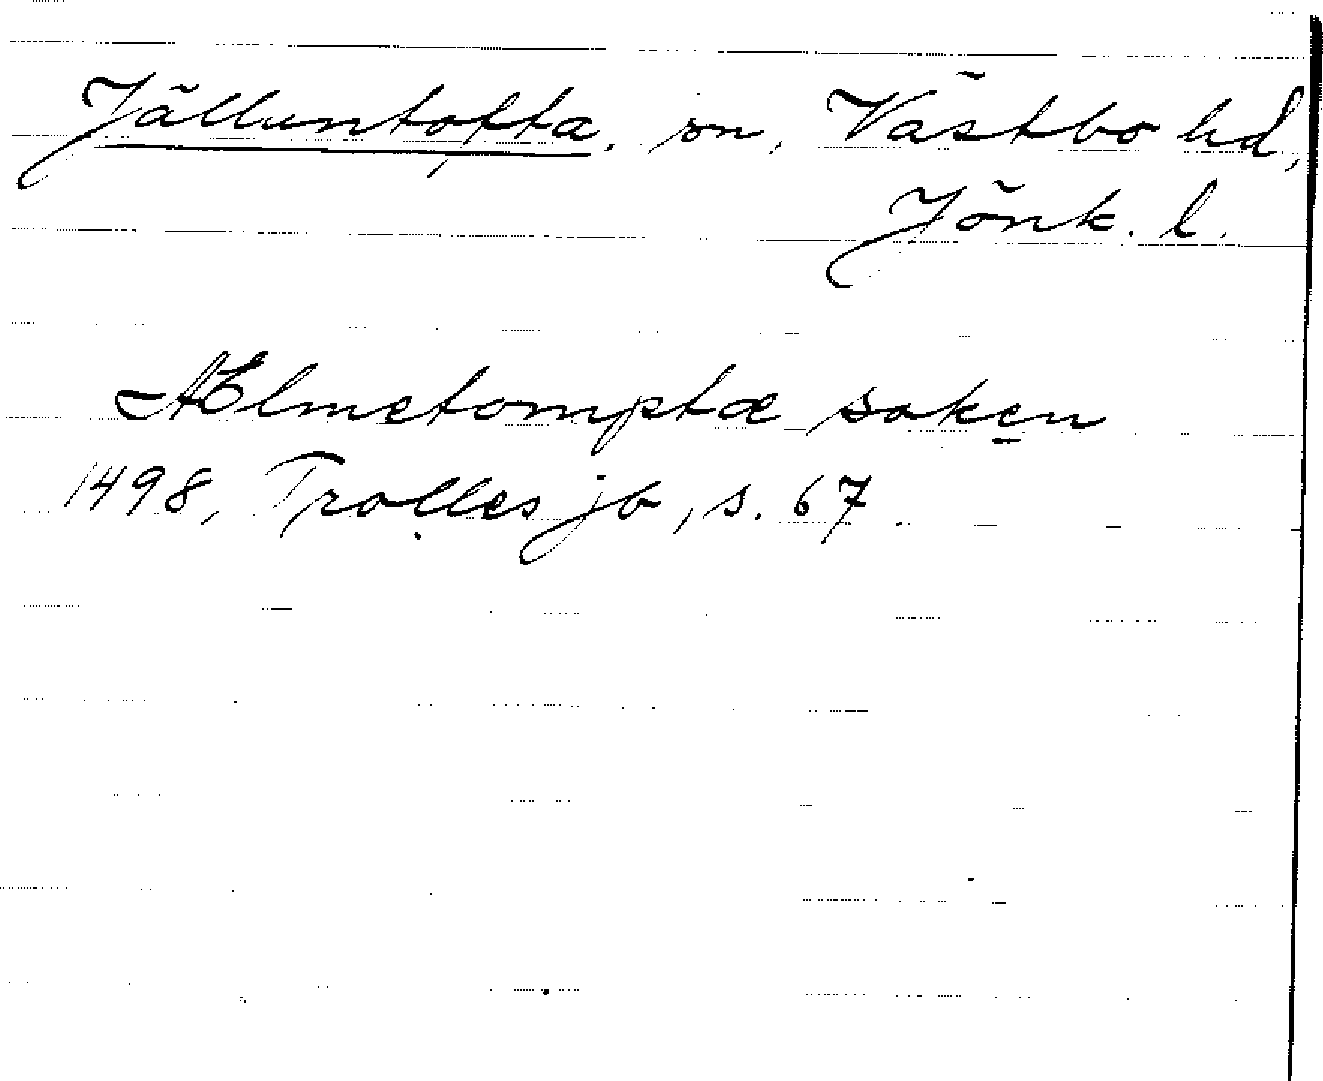 Jälluntofta, sn, Västbo hd,
Jönk. l.
Ælmetomptæ soken
1498, Trolles jb, s. 67